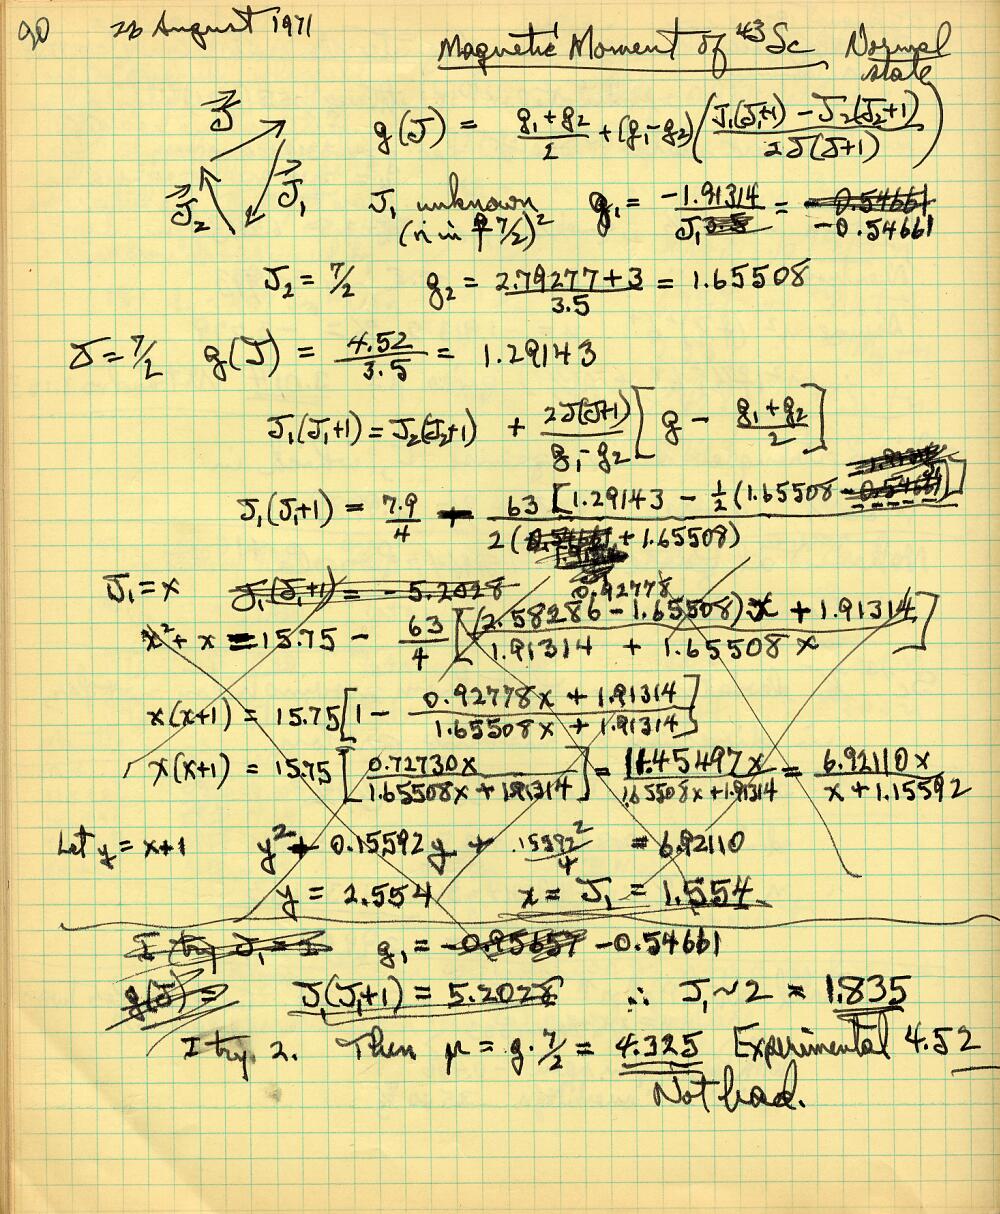 90 26 August 1971
Magnetic Moment of ⁴³Sc Normal state
J⃗ J⃗₁ J⃗₂
g(J) = (g₁ + g₂)/2 + (g₁ - g₂)((J₁(J₁+1) - J₂(J₂+1))/(2J(J+1)))
J₁ unknown g₁ = -1.91314/J₁ 3.5 = -0.54661
(n in f 7/2)² -0.54661
J₂ = 7/2 g₂ = (2.79277 + 3)/3.5 = 1.65508
J = 7/2 g(J) = 4.52/3.5 = 1.29143
J₁(J₁+1) = J₂(J₂+1) + (2J(J+1))/(g₁ - g₂) [g - (g₁ + g₂)/2]
J₁(J₁+1) = 7.9/4 - 63 [1.29143 - ½(1.65508 - 0.54661)] / 2(0.54661 + 1.65508)
J₁ = x J₁(J₁+1) = - 5.2028 0.92778
x² + x = 15.75 - 63/4 [((2.58286 - 1.65508)x + 1.91314)/(1.91314 + 1.65508x)]
x(x+1) = 15.75 [1 - (0.92778x + 1.91314)/(1.65508x + 1.91314)]
x(x+1) = 15.75 [0.72730x/(1.65508x + 1.91314)] = 11.45497x/(1.65508x + 1.91314) = 6.92110x/(x + 1.15592)
Let y = x+1 y² + 0.15592y + .15592²/4 = 6.92110
y = 2.554 x = J₁ = 1.554
I try J₁ = 2 g₁ = -0.95657 -0.54661
g(J) = J₁(J₁+1) = 5.2028 ∴ J₁ ~ 2 = 1.835
I try 2. Then μ = g·7/2 = 4.325 Experimental 4.52
Not bad.